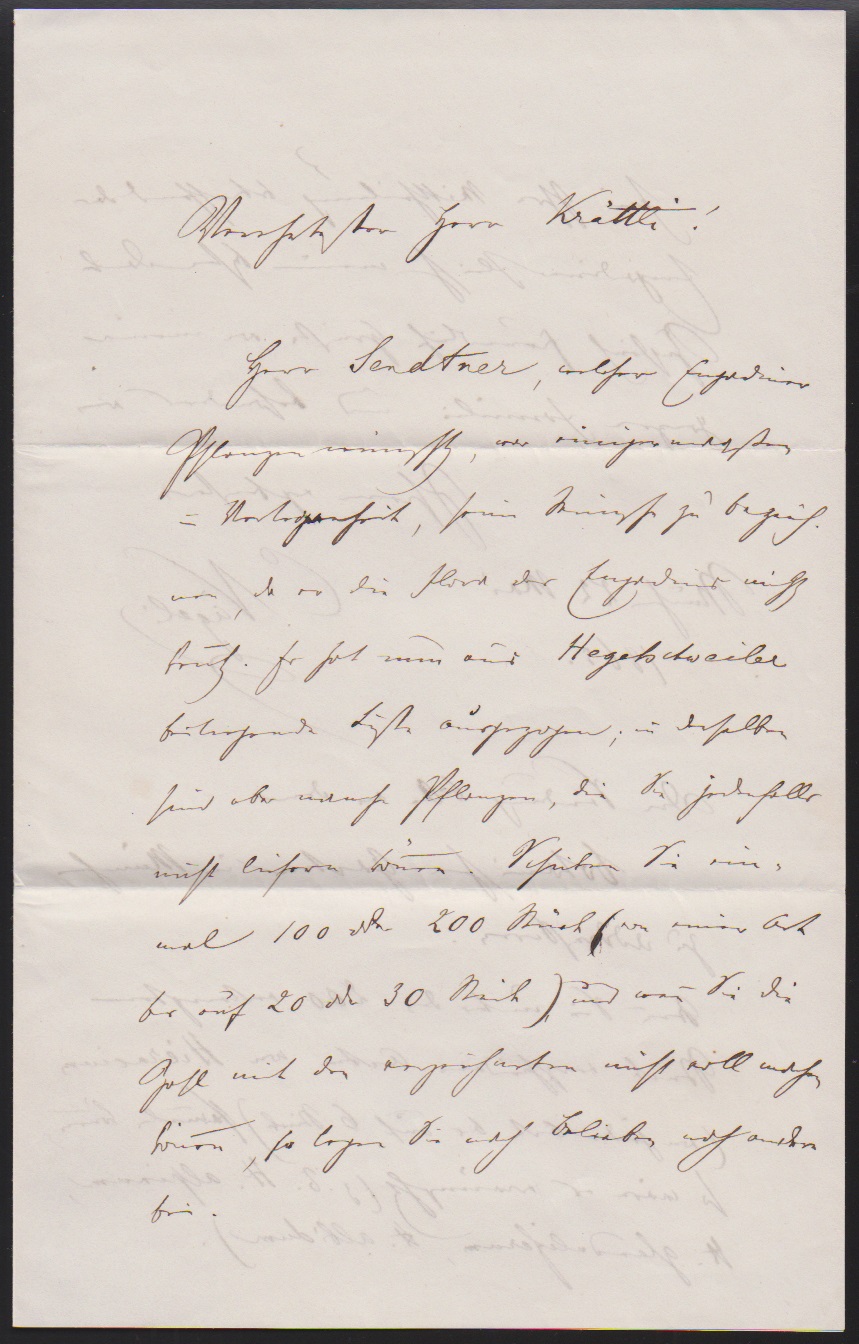 Verehrtester Herr Krättli!
Herr Sendtner, welcher Engadiner
Pflanzen wünscht, war einigermassen
in Verlegenheit, seine Wünsche zu bezeich-
nen, da er die Flora des Engadins nicht
kennt. Er hat nun aus Hegetschweiler
beiliegende Liste ausgezogen; in derselben
sind aber manche Pflanzen, die Sie jedenfalls
nicht liefern können. Schicken Sie ein-
mal 100 oder 200 Stück (von einer Art
bis auf 20 oder 30 Stück) und wenn Sie die
Zahl mit den verzeichneten nicht voll machen
können, so legen Sie nach Belieben noch andere
bei.